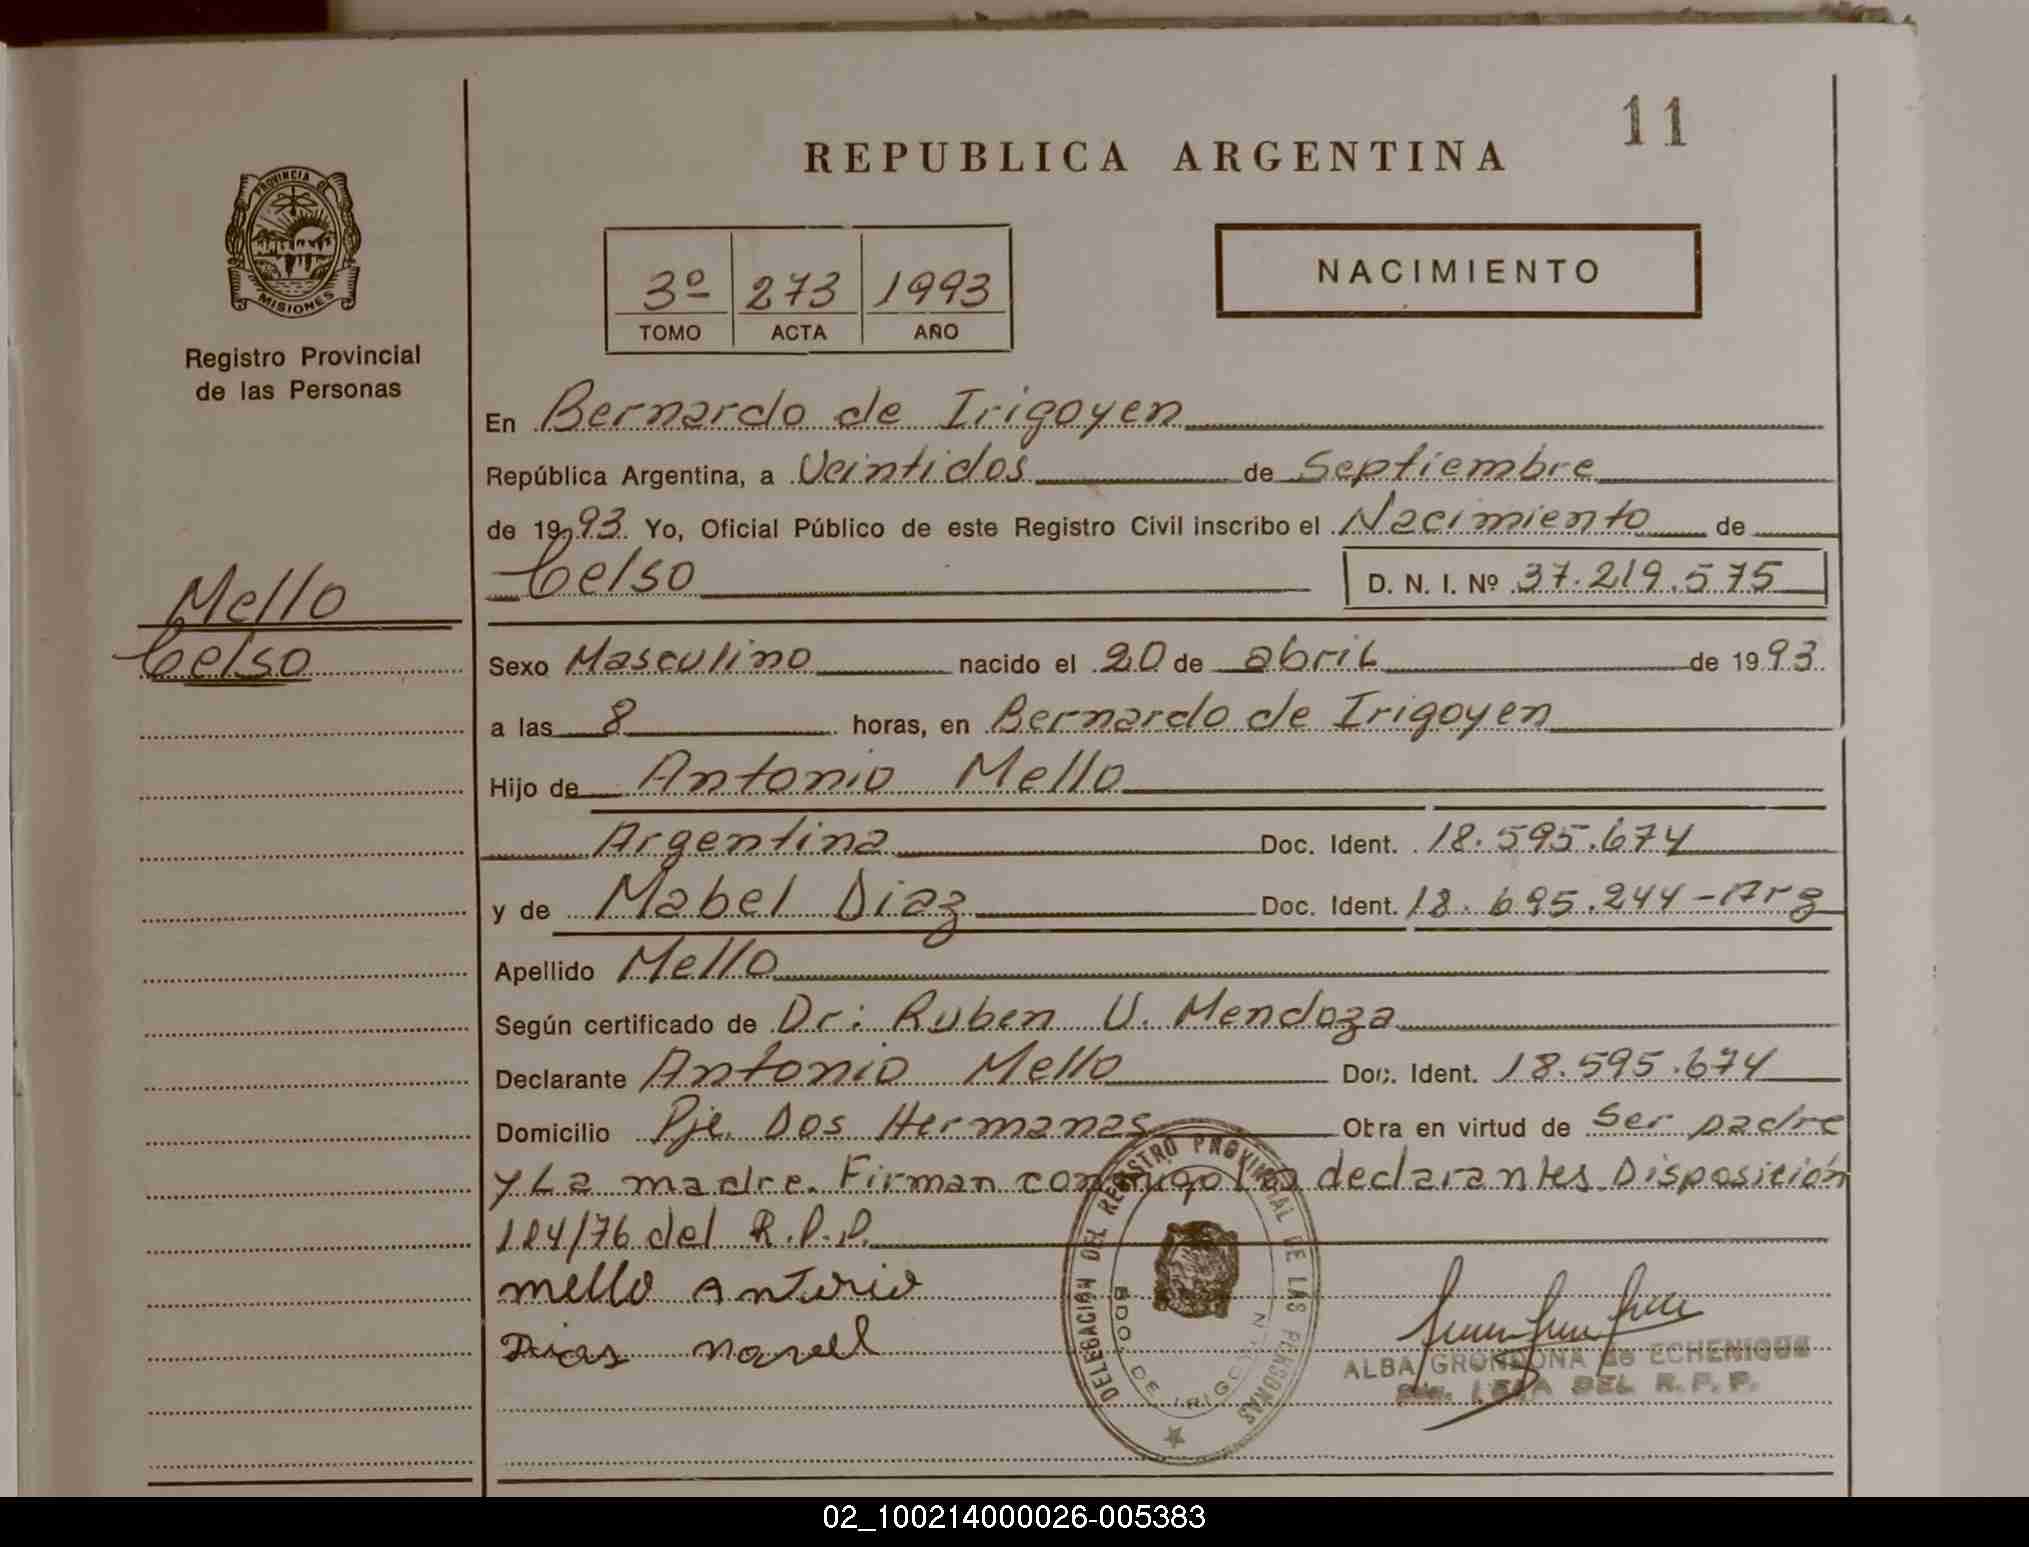 11
REPUBLICA ARGENTINA
PROVINCIA DE
MISIONES
Registro Provincial
de las Personas
NACIMIENTO
3º 273 1993
TOMO ACTA AÑO
En Bernardo de Irigoyen
República Argentina, a Veintidos de Septiembre
de 1993 Yo, Oficial Público de este Registro Civil inscribo el Nacimiento de
Celso D. N. I. Nº 37.219.575
Mello
Celso
Sexo Masculino nacido el 20 de abril de 1993
a las 8 horas, en Bernardo de Irigoyen
Hijo de Antonio Mello
Argentina Doc. Ident. 18.595.674
y de Mabel Diaz Doc. Ident. 18.695.244-Arg
Apellido Mello
Según certificado de Dr: Ruben U. Mendoza
Declarante Antonio Mello Doc. Ident. 18.595.674
Domicilio Pje. Dos Hermanas Obra en virtud de Ser padre
y La madre. Firman conmigo los declarantes Disposición
114/76 del R.P.P.
mello Antonio
Dias
DELEGACIÓN DEL REGISTRO PROVINCIAL DE LAS PERSONAS
BDO. DE IRIGOYEN
ALBA GRONDONA de ECHENIQUE
DEL R.P.P.
02_100214000026-005383